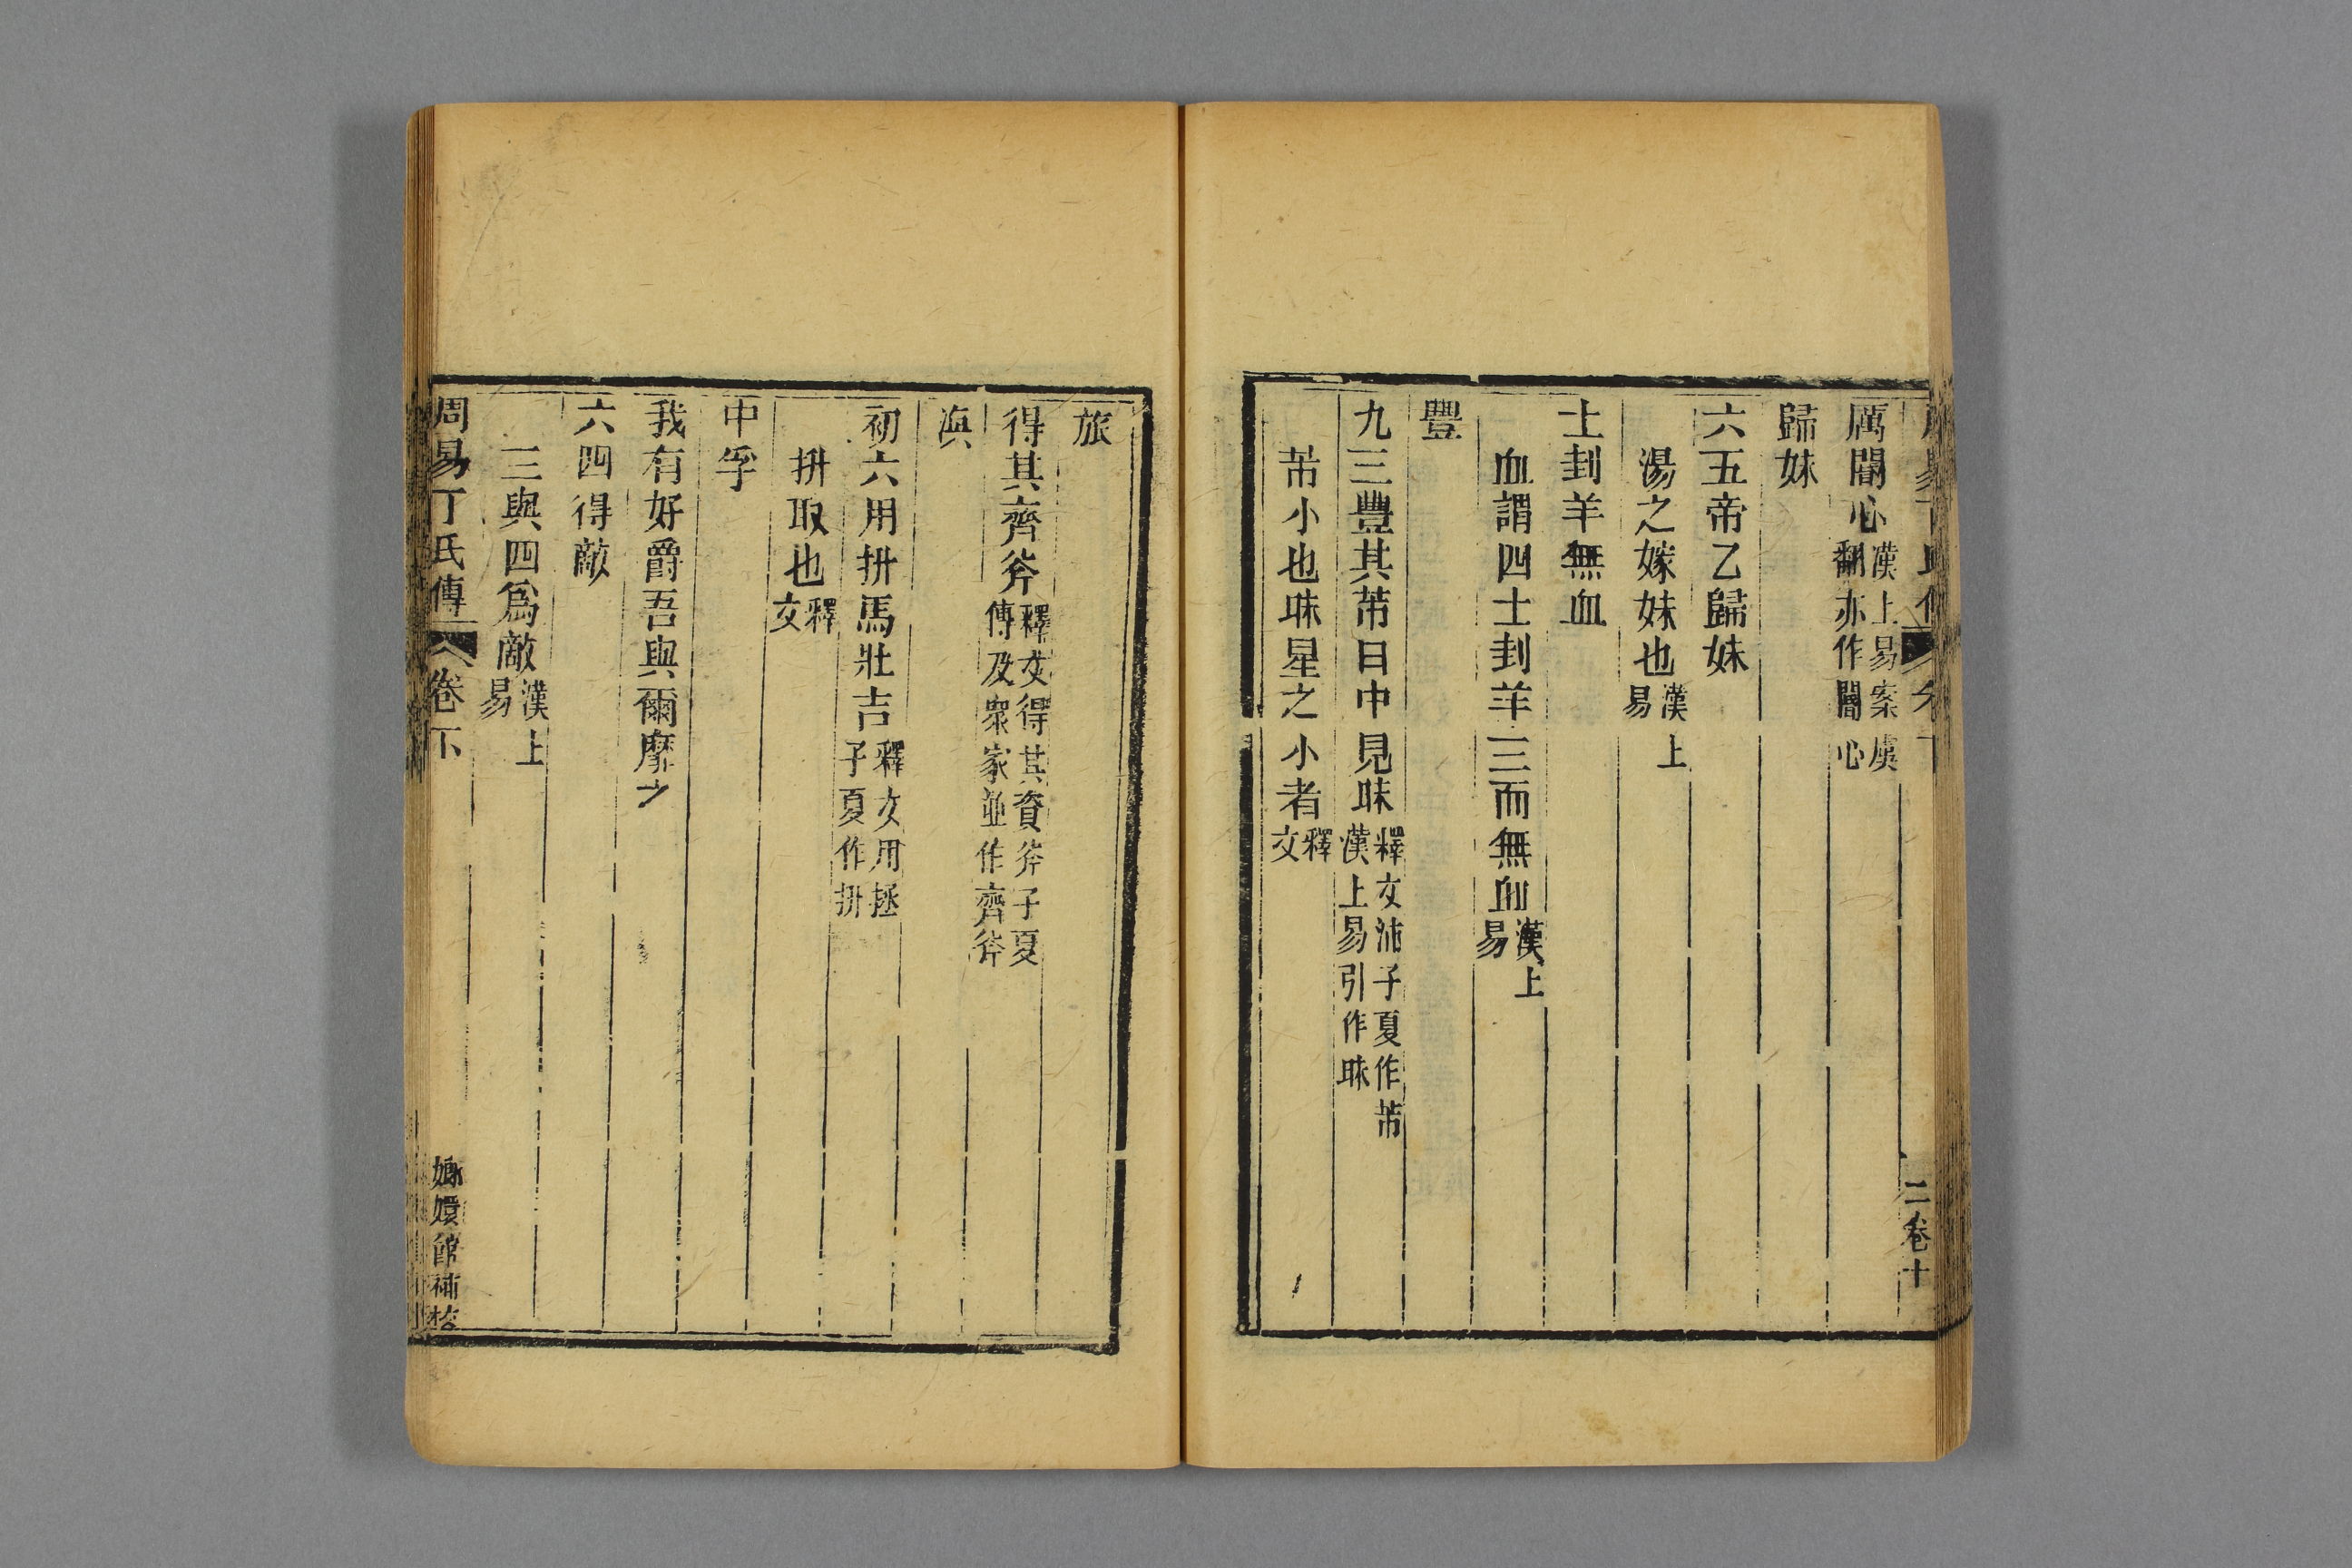 厲閽心漢上易案虞翻亦作閽心
歸妹
六五帝乙歸妹
湯之嫁妹也漢上易
士刲羊無血
血謂四士刲羊三而無血漢上易
豐
九三豐其芾日中見昧釋文沛子夏作芾漢上易引作昧
芾小也昧星之小者釋文
二卷十
旅
得其齊斧釋文得其資斧子夏傳及眾家並作齊斧
渙
初六用拼馬壯吉釋文用拯子夏作拼
拼取也釋文
中孚
我有好爵吾與爾靡之
六四得敵
三與四爲敵漢上易
周易丁氏傳 卷下
嫏嬛館補校